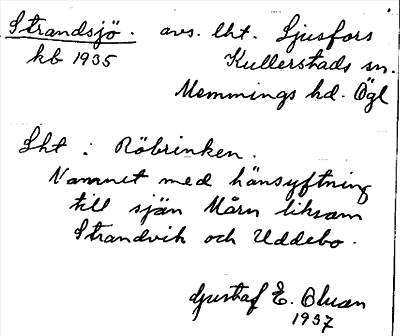 Strandsjö. avs. lht. Ljusfors
kb 1935 Kullerstads sn.
Memmings hd. Ögl
Lht : Röbrinken.
Namnet med hänsyftning
till sjön Mårn liksom
Strandvik och Uddebo.
Gustaf E. Olsson
1937